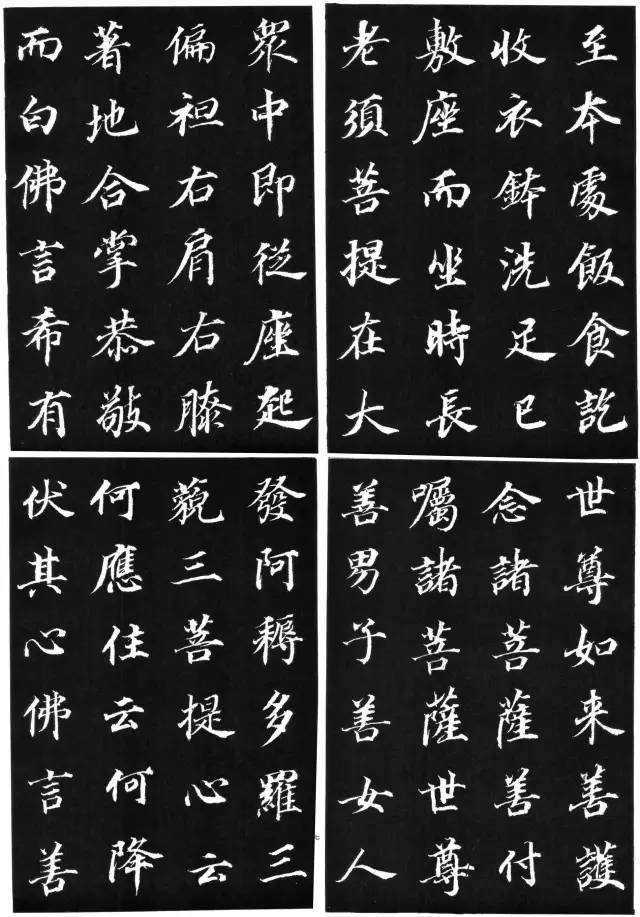 至本處飯食訖
收衣鉢洗足已
敷座而坐時長
老須菩提在大
眾中即從座起
偏袒右肩右膝
著地合掌恭敬
而白佛言希有
世尊如来善護
念諸菩薩善付
囑諸菩薩世尊
善男子善女人
發阿耨多羅三
藐三菩提心云
何應住云何降
伏其心佛言善
七